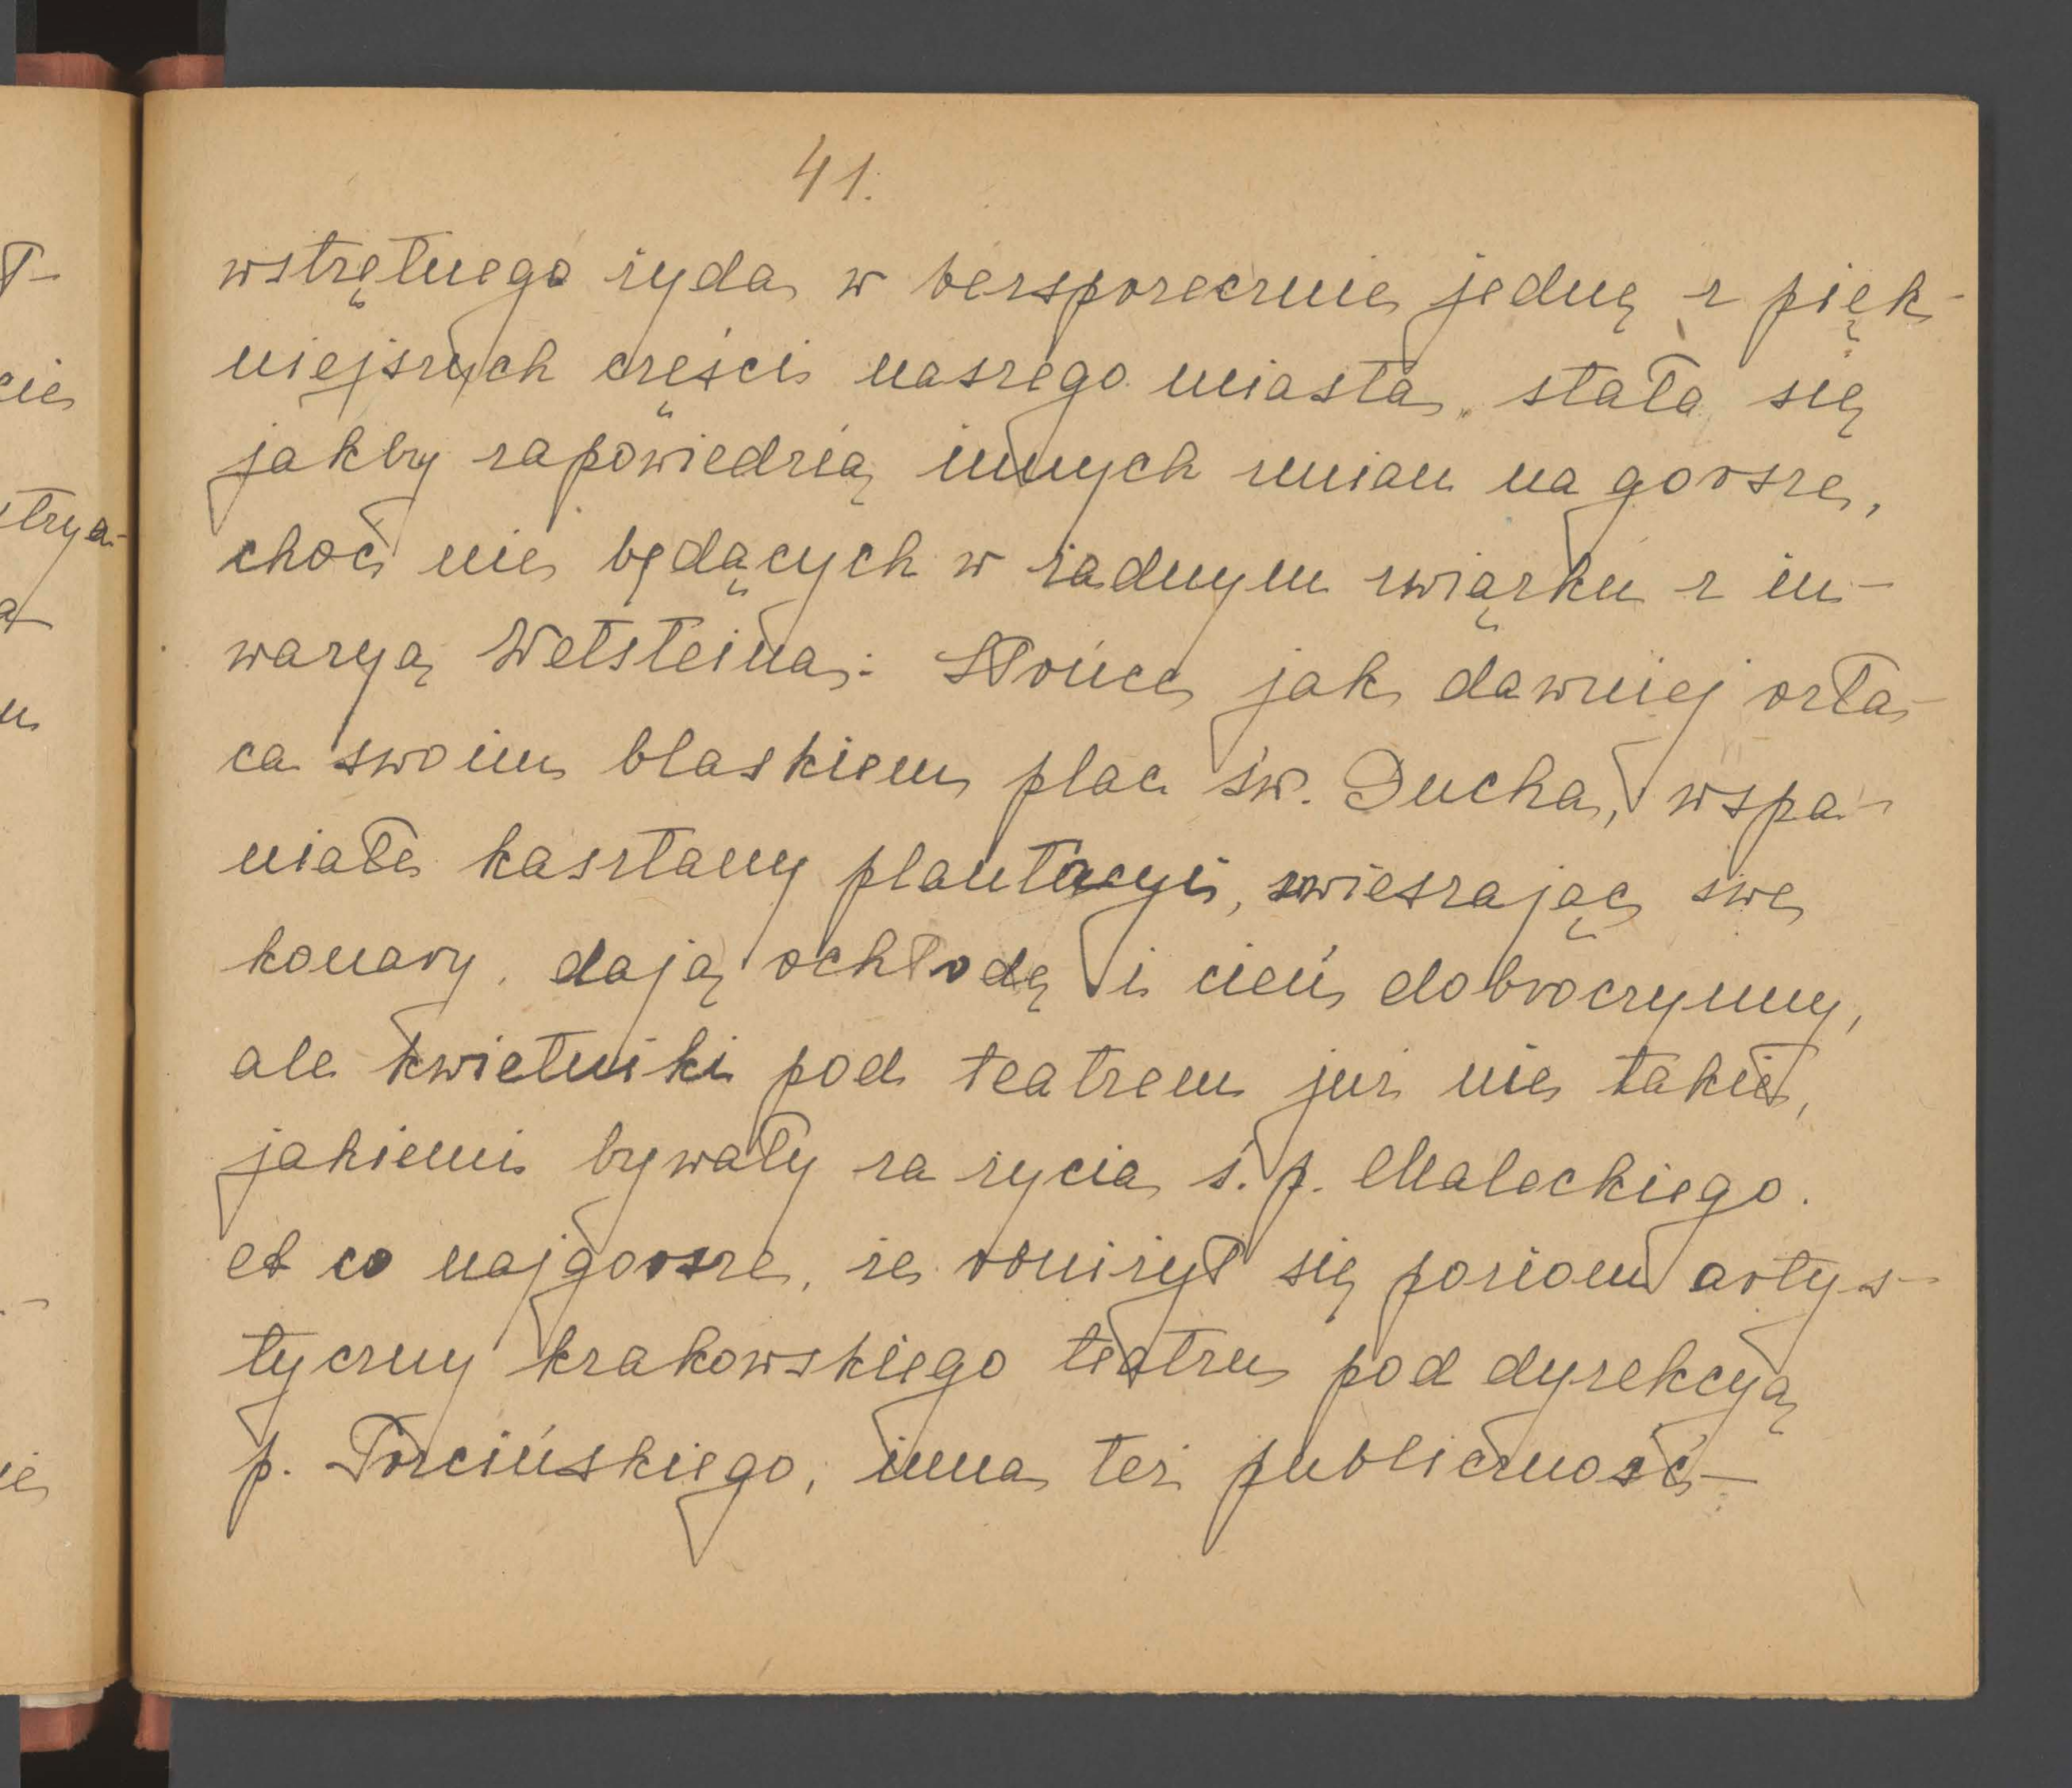 41.
wstrętnego żyda w bezsprzecznie jedną z pięk-
niejszych części naszego miasta, stała się
jakby zapowiedzią innych zmian na gorsze,
choć nie będących w żadnym związku z in-
wazyą Wetsteina: Słońce jak dawniej ozła-
ca swoim blaskiem plac św. Ducha, wspa-
niałe kasztany plantacyi, zwieszając swe
konary, dają ochłodę i cień dobroczynny,
ale kwietniki pod teatrem już nie takie,
jakiemi bywały za życia ś. p. Maleckiego.
A co najgorsze, że obniżył się poziom artys-
tyczny krakowskiego teatru pod dyrekcyą
p. Trzcińskiego, inna też publiczność –
T-
cie
strya-
a
u
ie